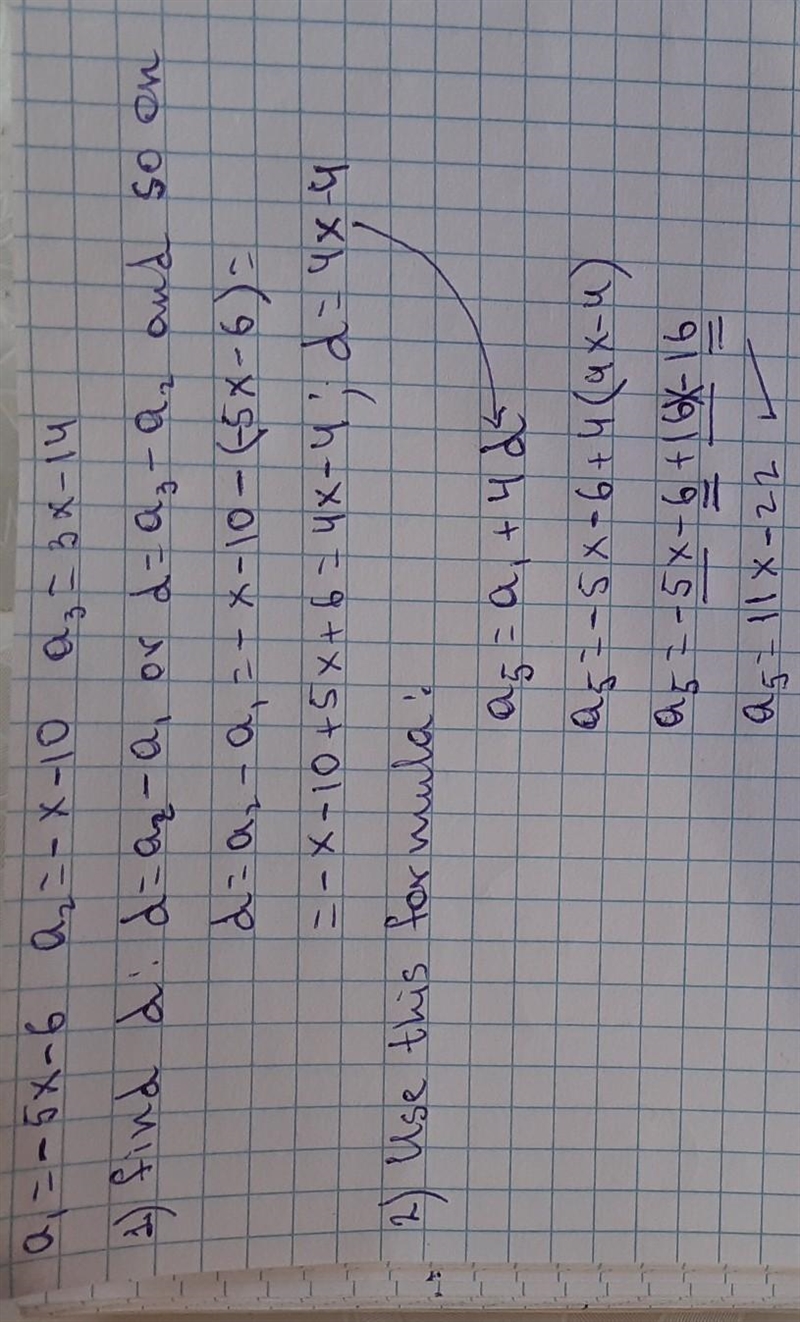 a₁ = -5x-6 a₂ = -x-10 a₃ = 3x-14
1) find d: d = a₂ - a₁ or d = a₃ - a₂ and so on
d = a₂ - a₁ = -x-10-(-5x-6) =
= -x-10+5x+6 = 4x-4; d = 4x-4
2) Use this formula:
a₅ = a₁ + 4d
a₅ = -5x-6+4(4x-4)
a₅ = -5x-6+16x-16
a₅ = 11x-22